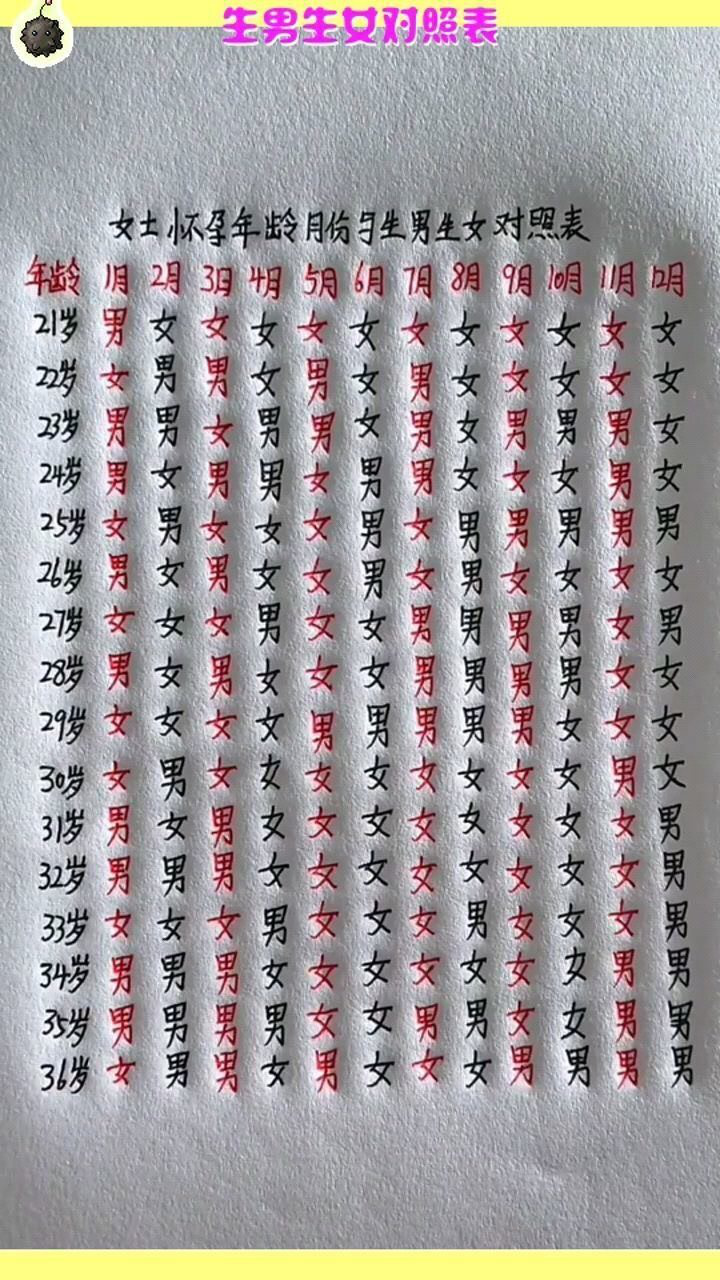 生男生女对照表
女士怀孕年龄月份与生男生女对照表
年龄 1月 2月 3月 4月 5月 6月 7月 8月 9月 10月 11月 12月
21岁 男 女 女 女 女 女 女 女 女 女 女 女
22岁 女 男 男 女 男 女 男 女 女 女 女 女
23岁 男 男 女 男 男 女 男 女 男 男 男 女
24岁 男 女 男 男 女 男 男 女 女 女 男 女
25岁 女 男 女 女 女 男 女 男 男 男 男 男
26岁 男 女 男 女 女 男 女 男 女 女 女 女
27岁 女 女 女 男 女 女 男 男 男 男 女 男
28岁 男 女 男 女 女 女 男 男 男 男 女 女
29岁 女 女 女 女 男 男 男 男 男 女 女 女
30岁 女 男 女 女 女 女 女 女 女 女 男 女
31岁 男 女 男 女 女 女 女 女 女 女 女 男
32岁 男 男 男 女 女 女 女 女 女 女 女 男
33岁 女 女 女 男 女 女 女 男 女 女 女 男
34岁 男 男 男 女 女 女 女 女 女 女 男 男
35岁 男 男 男 男 女 女 男 男 女 女 男 男
36岁 女 男 男 女 男 女 女 女 男 男 男 男